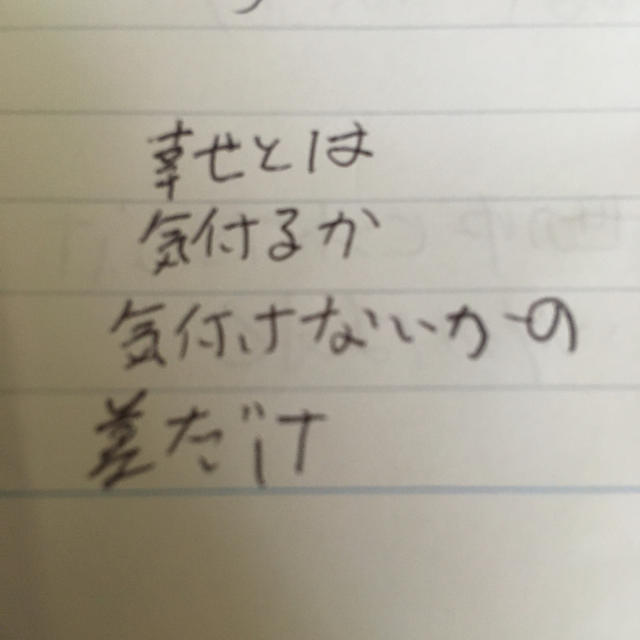 幸せとは
気付るか
気付けないかの
差だけ